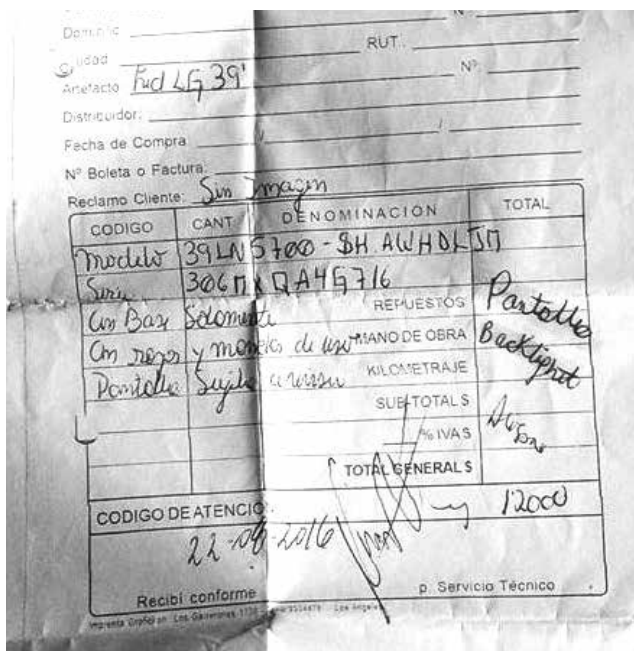 RUT.:
Ciudad
Nº
Artefacto Lcd LG 39"
Distribuidor:
Fecha de Compra / /
Nº Boleta o Factura:
Reclamo Cliente: Sin Imagen
CODIGO CANT. DENOMINACIÓN TOTAL
Modelo 39LN5700-SH AWHDLJM
Serie 306MXQA4G716
Con Base Solamente REPUESTOS Pantalla
Con rozes y de uso MANO DE OBRA Backlight
Pantalla Sujeta a revision KILOMETRAJE
SUB-TOTAL $
% IVA $
TOTAL GENERAL $
CODIGO DE ATENCIO 12000
22-08-2016
Recibí conforme p. Servicio Técnico
Los Angeles